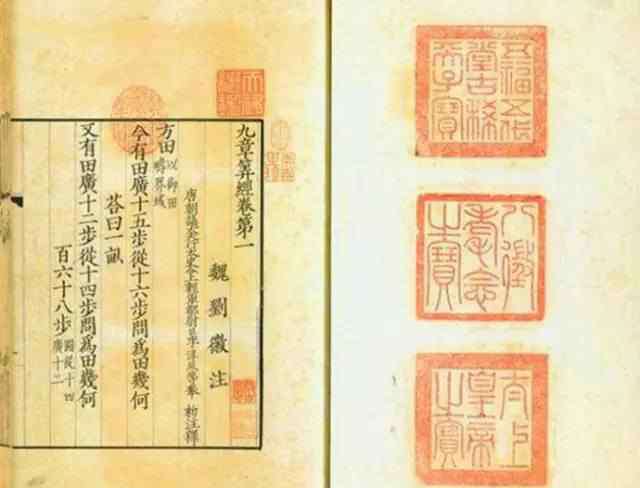 五福五代
堂古稀
天子寶
八徵
耄念
之寶
太上
皇帝
之寶
九章筭經卷第一
魏劉徽注
唐朝議大夫行太史令上輕車都尉臣李淳風等奉 勑注釋
方田以御田疇界域
今有田廣十五步從十六步問為田幾何
荅曰一畝
又有田廣十二步從十四步問為田幾何
百六十八步圖從十四廣十二